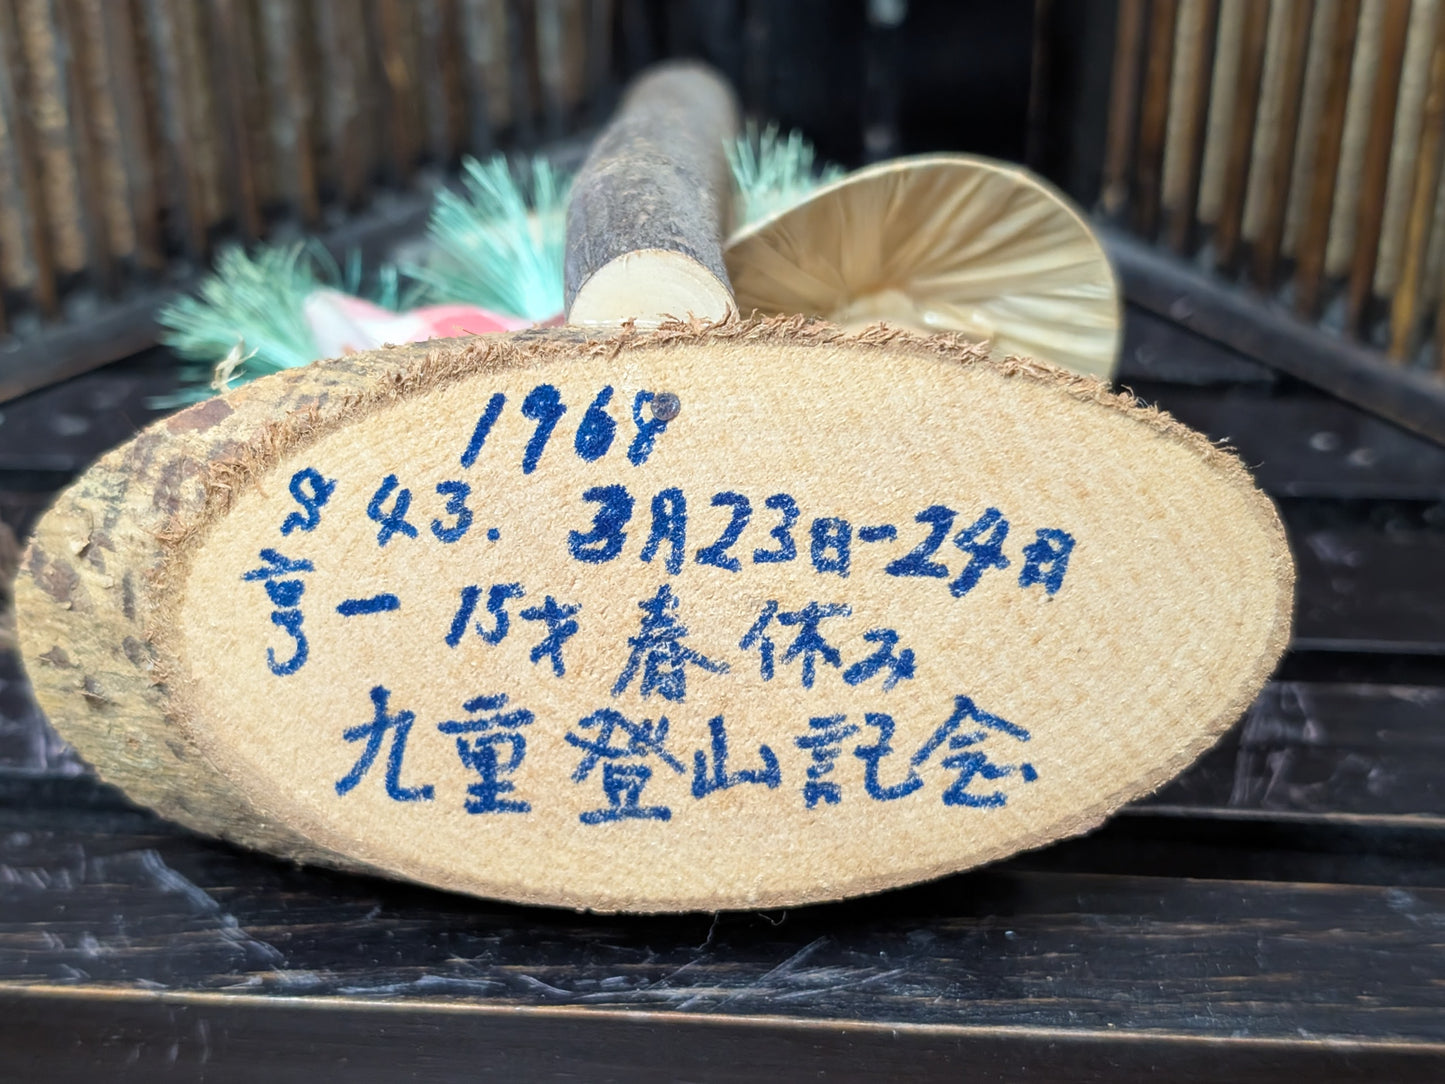 1968
43. 3月23日-24日
ー 15才 春休み
九重登山記念